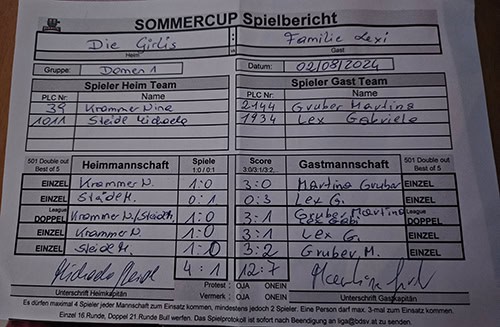 SOMMERCUP Spielbericht
Die Girlis : Familie Lexi
Heim vs Gast
Gruppe: Damen 1 Datum: 02/08/2024
Spieler Heim Team Spieler Gast Team
PLC Nr: Name PLC Nr: Name
39 Krammer Nina 2144 Gruber Martina
1011 Steidl Michaela 1934 Lex Gabriele
501 Double out Best of 5 Heimmannschaft Spiele 1:0 / 0:1 Score 3:0/3:1/3:2... Gastmannschaft 501 Double out Best of 5
EINZEL Krammer N. 1:0 3:0 Martina Gruber EINZEL
EINZEL M. 0:1 0:3 Lex G. EINZEL
League DOPPEL Krammer N/ 1:0 3:1 Gruber Martina Lex Gabi League DOPPEL
EINZEL Krammer N. 1:0 3:1 Lex G. EINZEL
EINZEL Steidl M. 1:0 3:2 Gruber, M. EINZEL
4:1 12:7
Unterschrift Heimkapitän Protest : OJA ONEIN Unterschrift Gastkapitän
Vermerk : OJA ONEIN
Es dürfen maximal 4 Spieler jeder Mannschaft zum Einsatz kommen, mindestens jedoch 2 Spieler. Eine Person darf max. 3-mal zum Einsatz kommen.
Einzel 16 Runde, Doppel 21.Runde Bull werfen. Das Spielprotokoll ist sofort nach Beendigung an liga@bdsv.at zu senden.